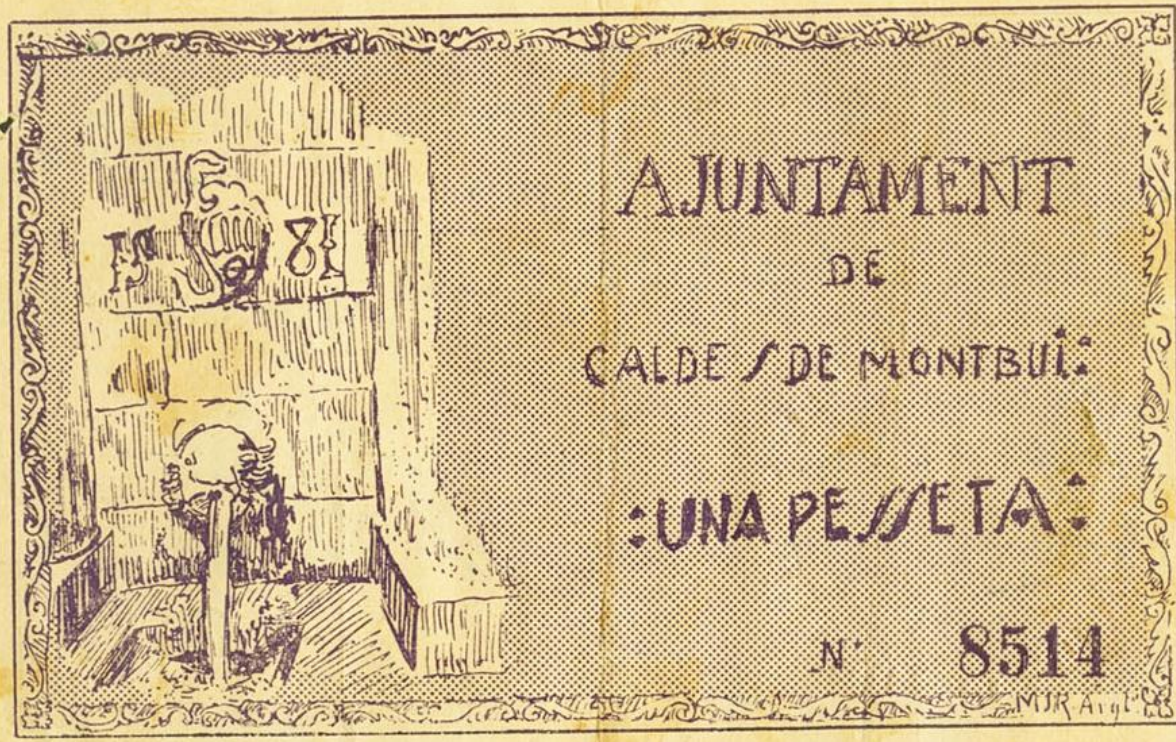 1581
AJUNTAMENT
DE
CALDES DE MONTBUI:
:UNA PESSETA:
Nº 8514